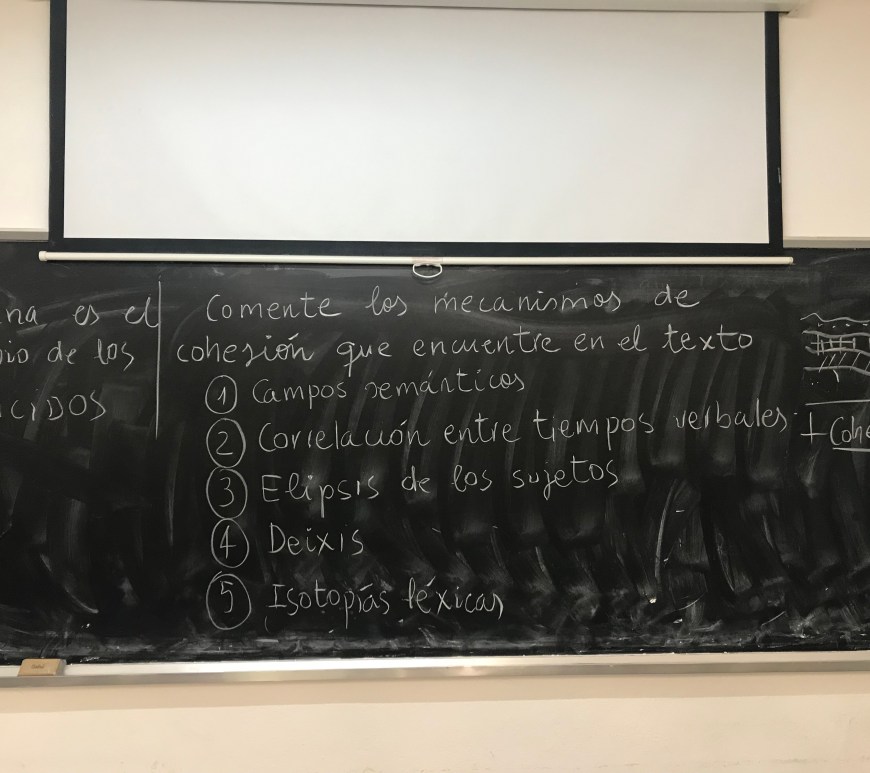 na es el
de los
CIDOS
Comente los mecanismos de
cohesión que encuentre en el texto
① Campos semánticos
② Correlación entre tiempos verbales
③ Elipsis de los sujetos
④ Deixis
⑤ Isotopías léxicas
+ Cohe